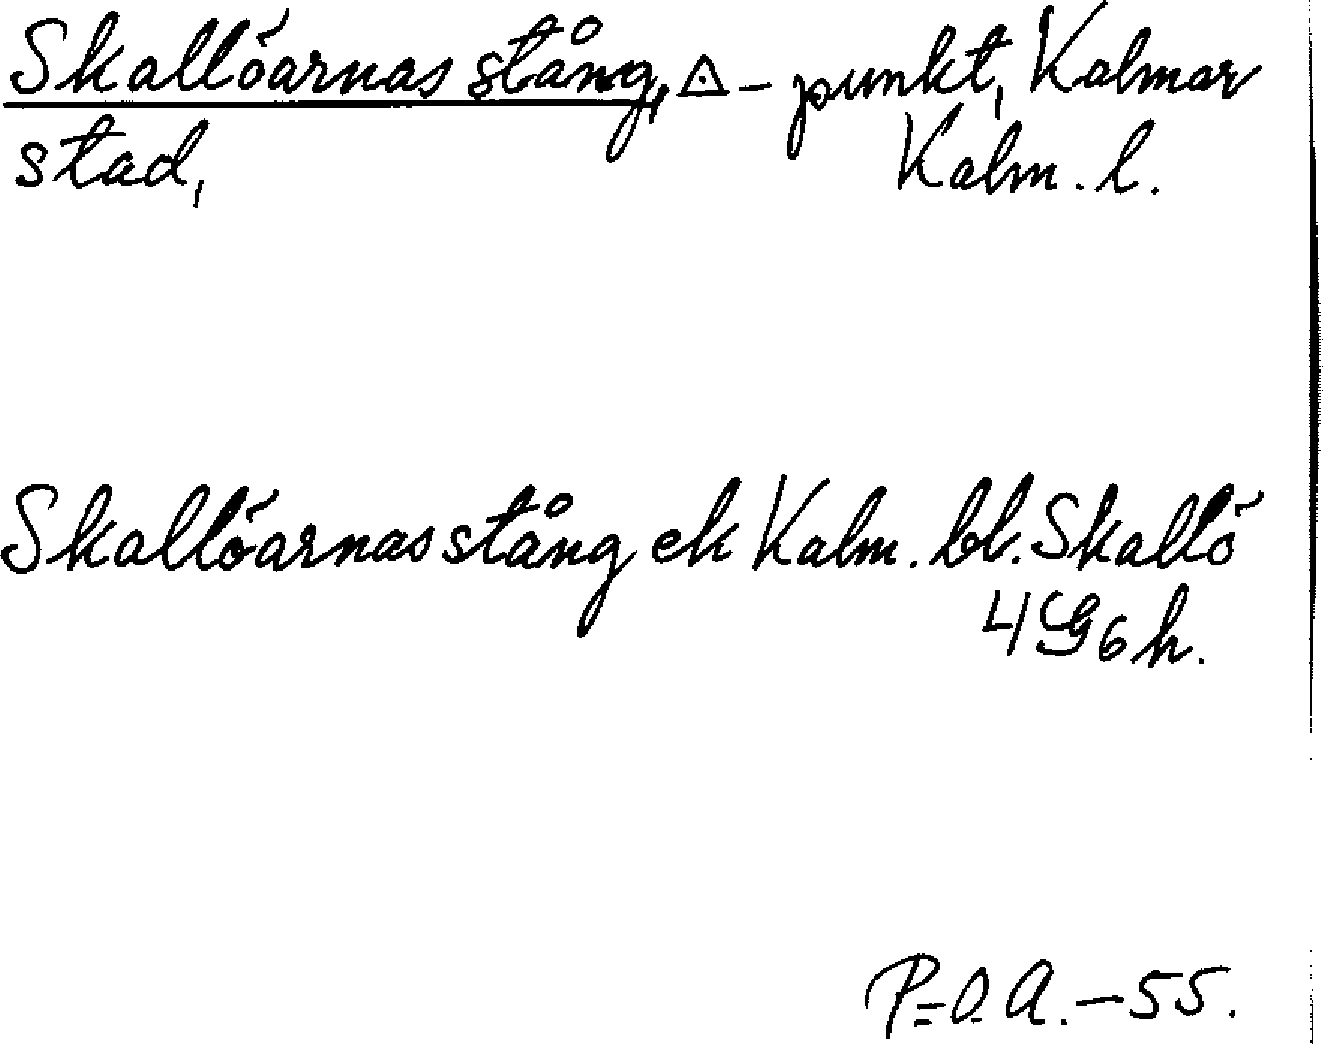 Skallöarnas stång, △ - punkt, Kalmar
stad, Kalm. l.
Skallöarnas stång ek Kalm. bl. Skallö
4G6h.
P-O. A. - 55.